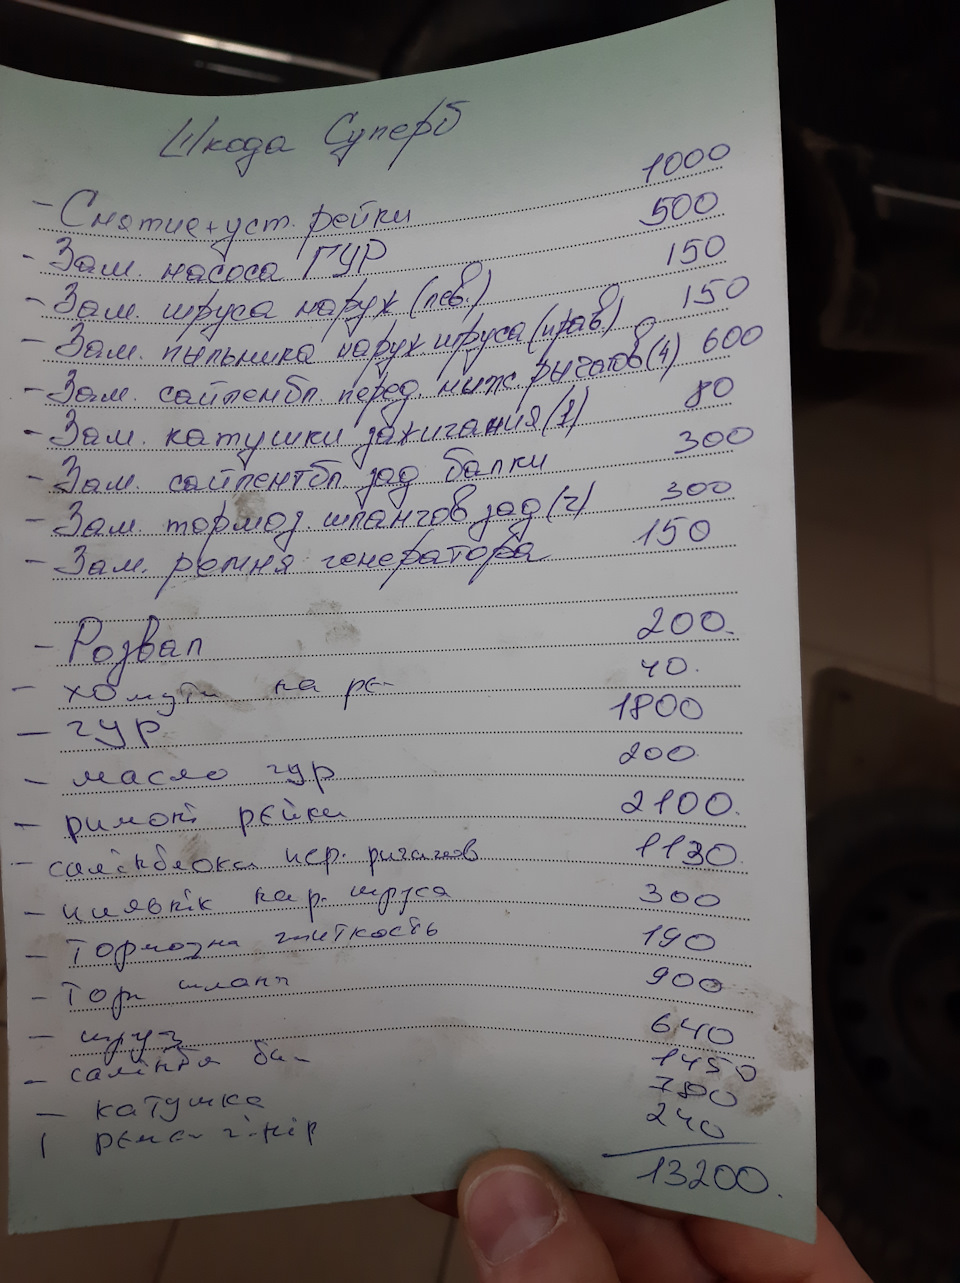 Шкода Суперб
- Снятие+уст. рейки 1000
- Зам. насоса ГУР 500
- Зам. шруса наруж (лев.) 150
- Зам. пыльника наруж. шруса (прав) 150
- Зам. сайлентбл. перед. нижн. рычагов (4) 600
- Зам. катушки зажигания (1) 80
- Зам. сайлентбл зад балки 300
- Зам. тормоз. шлангов зад (2) 300
- Зам. ремня генератора 150
- Розвал 200.
- хомути на ре- 40.
- гур 1800
- масло гур 200.
- римонт рейки 2100.
- салінблоки пер. ричагов 1130.
- пильнік нар. шруса 300
- тормозна житкость 190
- Тор. шланг 900
- шруз 640
- салінбл ба- 1450
- катушка 780
240
13200.